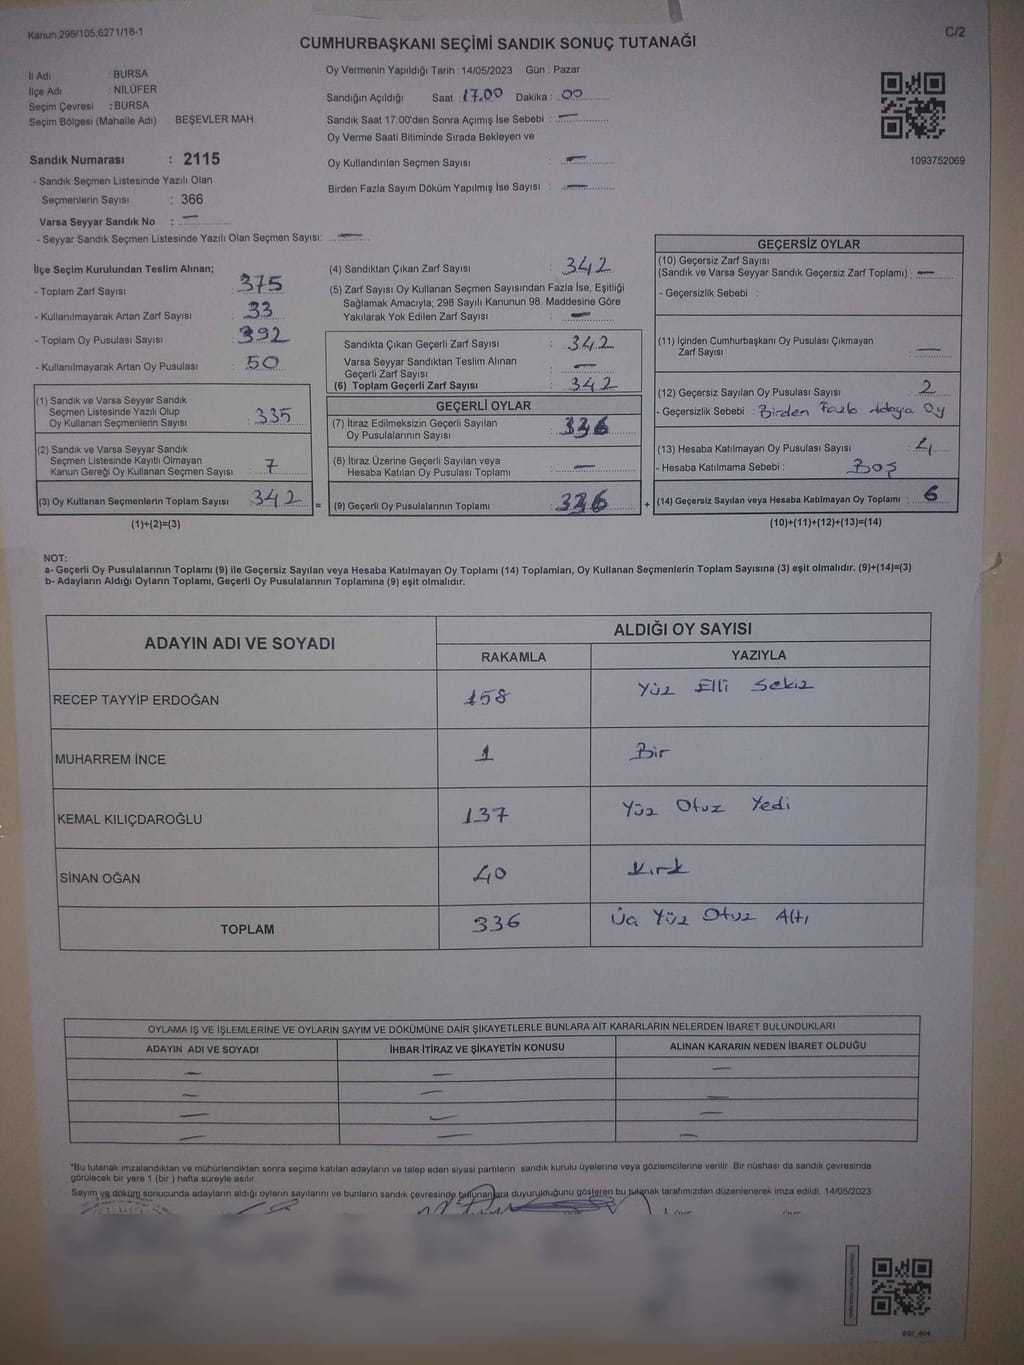 Kanun:298/105;6271/18-1
C/2
CUMHURBAŞKANI SEÇİMİ SANDIK SONUÇ TUTANAĞI
İl Adı : BURSA
İlçe Adı : NİLÜFER
Seçim Çevresi : BURSA
Seçim Bölgesi (Mahalle Adı) BEŞEVLER MAH.
Sandık Numarası : 2115
- Sandık Seçmen Listesinde Yazılı Olan
Seçmenlerin Sayısı : 366
Varsa Seyyar Sandık No : —
- Seyyar Sandık Seçmen Listesinde Yazılı Olan Seçmen Sayısı: —
Oy Vermenin Yapıldığı Tarih : 14/05/2023 Gün : Pazar
Sandığın Açıldığı Saat : 17.00 Dakika : 00
Sandık Saat 17:00'den Sonra Açımış İse Sebebi : —
Oy Verme Saati Bitiminde Sırada Bekleyen ve
Oy Kullandırılan Seçmen Sayısı : —
Birden Fazla Sayım Döküm Yapılmış İse Sayısı : —
1093752069
İlçe Seçim Kurulundan Teslim Alınan;
- Toplam Zarf Sayısı : 375
- Kullanılmayarak Artan Zarf Sayısı : 33
- Toplam Oy Pusulası Sayısı : 392
- Kullanılmayarak Artan Oy Pusulası : 50
(1) Sandık ve Varsa Seyyar Sandık
Seçmen Listesinde Yazılı Olup
Oy Kullanan Seçmenlerin Sayısı : 335
(2) Sandık ve Varsa Seyyar Sandık
Seçmen Listesinde Kayıtlı Olmayan
Kanun Gereği Oy Kullanan Seçmen Sayısı : 7
(3) Oy Kullanan Seçmenlerin Toplam Sayısı : 342
(1)+(2)=(3)
(4) Sandıktan Çıkan Zarf Sayısı : 342
(5) Zarf Sayısı Oy Kullanan Seçmen Sayısından Fazla İse, Eşitliği
Sağlamak Amacıyla; 298 Sayılı Kanunun 98. Maddesine Göre
Yakılarak Yok Edilen Zarf Sayısı : —
Sandıkta Çıkan Geçerli Zarf Sayısı : 342
Varsa Seyyar Sandıktan Teslim Alınan
Geçerli Zarf Sayısı : —
(6) Toplam Geçerli Zarf Sayısı : 342
GEÇERLİ OYLAR
(7) İtiraz Edilmeksizin Geçerli Sayılan
Oy Pusulalarının Sayısı : 336
(8) İtiraz Üzerine Geçerli Sayılan veya
Hesaba Katılan Oy Pusulası Toplamı : —
= (9) Geçerli Oy Pusulalarının Toplamı : 336 +
GEÇERSİZ OYLAR
(10) Geçersiz Zarf Sayısı
(Sandık ve Varsa Seyyar Sandık Geçersiz Zarf Toplamı) : —
- Geçersizlik Sebebi :
(11) İçinden Cumhurbaşkanı Oy Pusulası Çıkmayan
Zarf Sayısı : —
(12) Geçersiz Sayılan Oy Pusulası Sayısı : 2
- Geçersizlik Sebebi : Birden Fazla Adaya Oy
(13) Hesaba Katılmayan Oy Pusulası Sayısı : 4
- Hesaba Katılmama Sebebi : Boş
(14) Geçersiz Sayılan veya Hesaba Katılmayan Oy Toplamı : 6
(10)+(11)+(12)+(13)=(14)
NOT:
a- Geçerli Oy Pusulalarının Toplamı (9) ile Geçersiz Sayılan veya Hesaba Katılmayan Oy Toplamı (14) Toplamları, Oy Kullanan Seçmenlerin Toplam Sayısına (3) eşit olmalıdır. (9)+(14)=(3)
b- Adayların Aldığı Oyların Toplamı, Geçerli Oy Pusulalarının Toplamına (9) eşit olmalıdır.
ADAYIN ADI VE SOYADI
ALDIĞI OY SAYISI
RAKAMLA YAZIYLA
RECEP TAYYİP ERDOĞAN 158 Yüz Elli Sekiz
MUHARREM İNCE 1 Bir
KEMAL KILIÇDAROĞLU 137 Yüz Otuz Yedi
SİNAN OĞAN 40 Kırk
TOPLAM 336 Üç Yüz Otuz Altı
OYLAMA İŞ VE İŞLEMLERİNE VE OYLARIN SAYIM VE DÖKÜMÜNE DAİR ŞİKAYETLERLE BUNLARA AİT KARARLARIN NELERDEN İBARET BULUNDUKLARI
ADAYIN ADI VE SOYADI İHBAR İTİRAZ VE ŞİKAYETİN KONUSU ALINAN KARARIN NEDEN İBARET OLDUĞU
— — —
— — —
— — —
— — —
*Bu tutanak imzalandıktan ve mühürlendikten sonra seçime katılan adayların ve talep eden siyasi partilerin sandık kurulu üyelerine veya gözlemcilerine verilir. Bir nüshası da sandık çevresinde
görülecek bir yere 1 (bir ) hafta süreyle asılır.
Sayım ve döküm sonucunda adayların aldığı oyların sayılarını ve bunların sandık çevresinde bulunanlara duyurulduğunu gösteren bu tutanak tarafımızdan düzenlenerek imza edildi. 14/05/2023